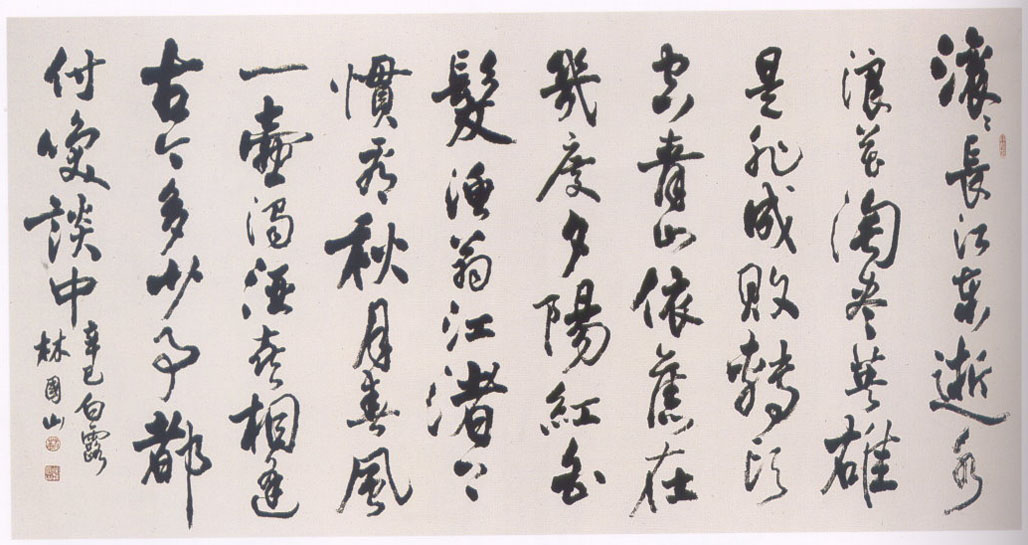 滚滚長江東逝水
浪花淘盡英雄
是非成敗轉頭
空青山依舊在
幾度夕陽紅白
髮漁翁江渚上
慣看秋月春風
一壺濁酒喜相逢
古今多少事都
付笑談中
辛巳白露
林國山